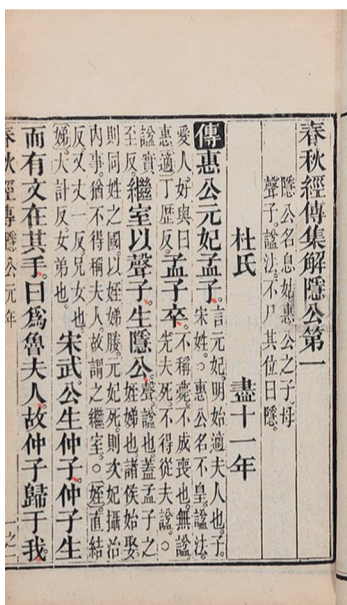 春秋經傳集解隱公第一
隱公名息姑惠公之子母
聲子謚法不尸其位曰隱
杜氏 盡十一年
傳惠公元妃孟子
言元妃明始適夫人也子
宋姓○惠公名不皇謚法
愛人好與曰
惠適丁歷反
孟子卒
不稱薨不成喪也無謚
先夫死不得從夫謚○
謚實
至反
繼室以聲子生隱公
聲謚也蓋孟子之
姪娣也諸侯始娶
則同姓之國以姪娣媵元妃死則次妃攝治
內事猶不得稱夫人故謂之繼室○姪直結
反又丈一反兄女也
娣大計反女弟也
宋武公生仲子仲子生
而有文在其手曰爲魯夫人故仲子歸于我
春秋經傳隱公元年